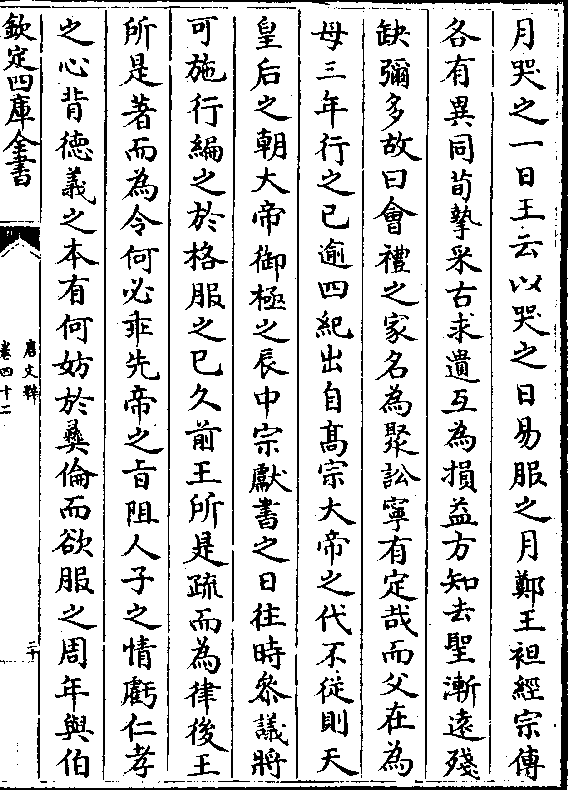 月哭之一日王云以哭之日易服之月鄭王袒經宗傳
各有異同荀摯采古求遺互為損益方知去聖漸遠殘
缺彌多故曰會禮之家名為聚訟寧有定哉而父在為
母三年行之已逾四紀出自髙宗大帝之代不從則天
皇后之朝大帝御極之辰中宗獻書之日往時叅議將
可施行編之於格服之已久前王所是疏而為律後王
所是著而為令何必乖先帝之旨阻人子之情虧仁孝
之心背德義之本有何妨於彝倫而欲服之周年與伯
欽定四庫全書
唐文粹
卷四十二
二十